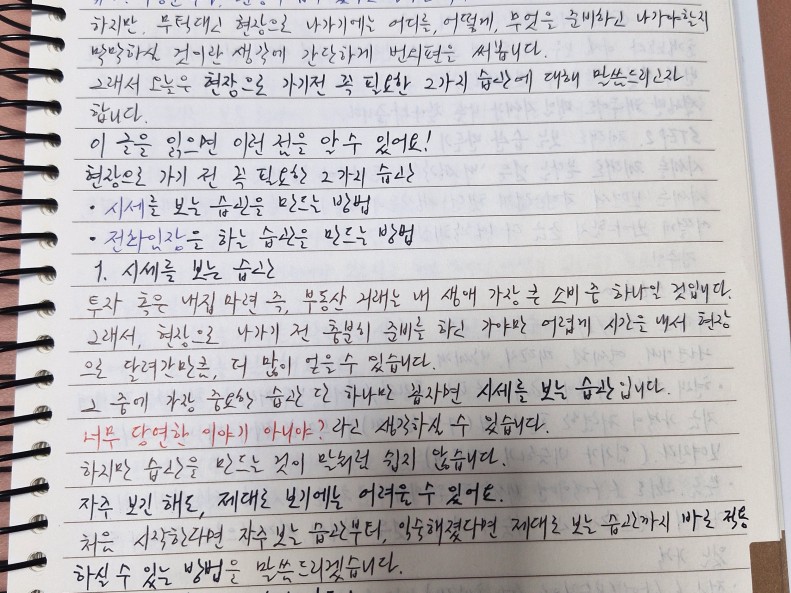 하지만, 무턱대고 현장으로 나가기에는 어디를, 어떻게, 무엇을 준비하고 나가야할지
막막하실 것이란 생각에 간단하게 번외편을 써봅니다.
그래서 오늘은 현장으로 가기전 꼭 필요한 2가지 습관에 대해 말씀드리고자
합니다.
이 글을 읽으면 이런 점을 알 수 있어요!
현장으로 가기 전 꼭 필요한 2가지 습관
· 시세를 보는 습관을 만드는 방법
· 전화임장을 하는 습관을 만드는 방법
1. 시세를 보는 습관
투자 혹은 내집마련 즉, 부동산 거래는 내 생애 가장 큰 소비 중 하나일 것입니다.
그래서, 현장으로 나가기 전 충분히 준비를 하고 가야만 어렵게 시간을 내서 현장
으로 달려간만큼, 더 많이 얻을 수 있습니다.
그 중에 가장 중요한 습관 단 하나만 꼽자면 시세를 보는 습관입니다.
너무 당연한 이야기 아니야? 라고 생각하실 수 있습니다.
하지만 습관을 만드는 것이 말처럼 쉽지 않습니다.
자주 보긴 해도, 제대로 보기에는 어려울 수 있어요.
처음 시작한다면 자주 보는 습관부터, 익숙해졌다면 제대로 보는 습관까지 바로 적용
하실 수 있는 방법을 말씀드리겠습니다.